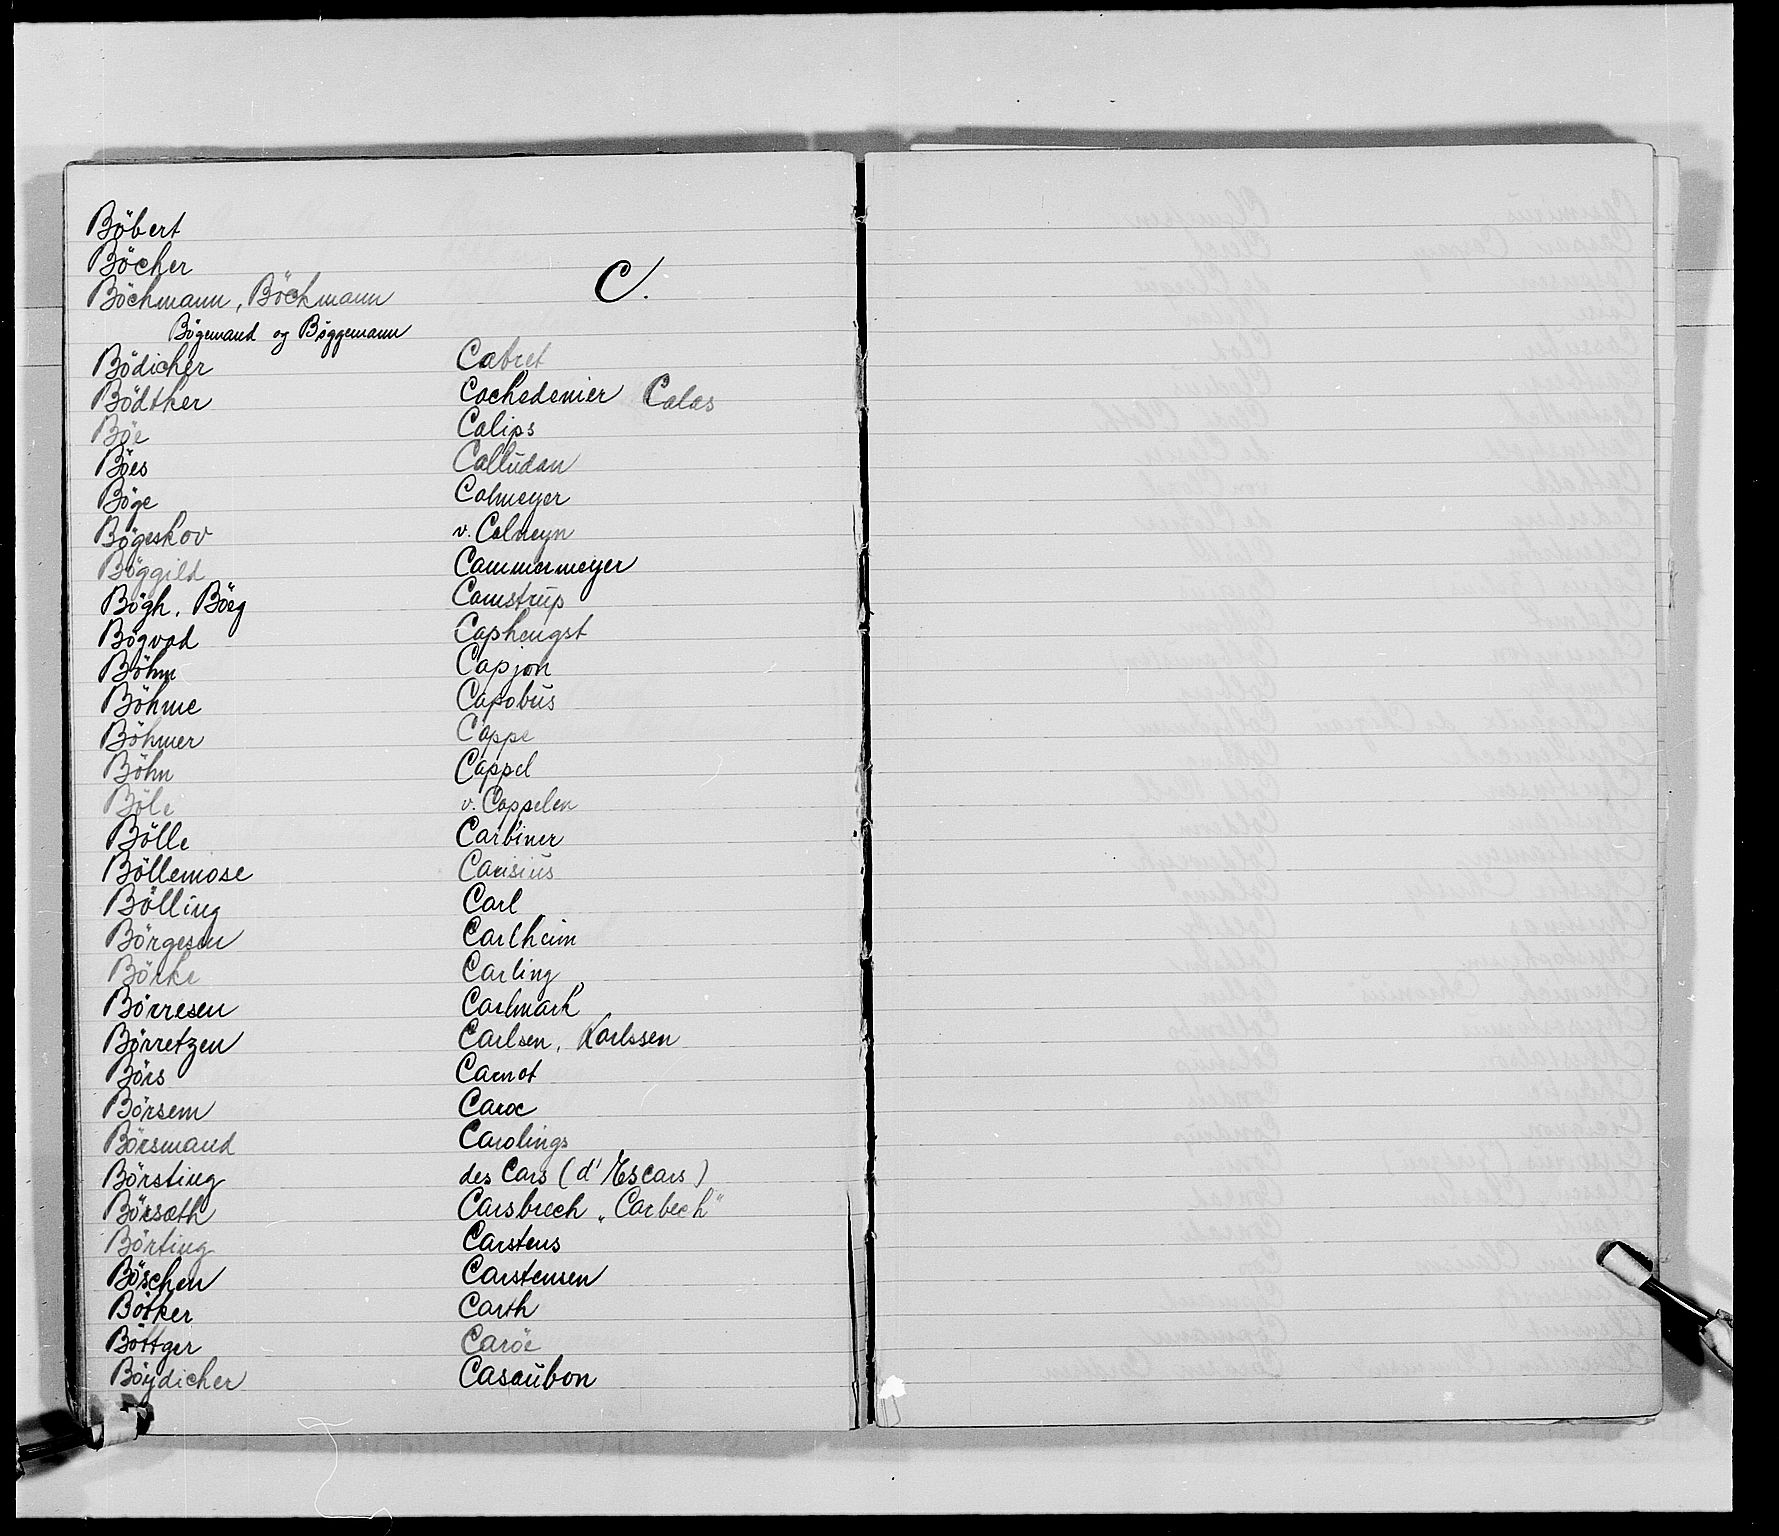 Böbert
Böcher
Böchmann, Böckmann
Bögemand og Bøggemann
Bödicher
Bödther
Böe
Böes
Böge
Bögeskov
Böggild
Bögh, Böeg
Bögvad
Böhm
Böhme
Böhmer
Böhn
Böle
Bölle
Böllemose
Bölling
Börgesen
Börke
Börresen
Börretzen
Börs
Börsem
Börsmand
Börsting
Börsæth
Börting
Böschen
Bötker
Böttger
Böydicher
C.
Cabret
Cachedenier Calas
Calips
Calludan
Calmeyer
v. Calneyn
Cammermeyer
Camstrup
Caphengst
Capjon
Capobus
Cappe
Cappel
v. Cappelen
Carbiner
Carisius
Carl
Carlheim
Carling
Carlmark
Carlsen, Karlssen
Carnot
Caroc
Carolings
des Cars (d'Escars)
Carsbrech „Carbech"
Carstens
Carstensen
Carth
Caröe
Casaubon